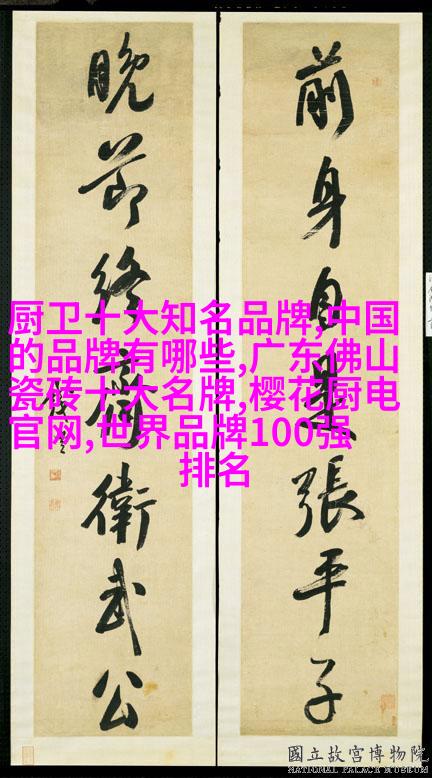 前身自是張平子
晚節終齊衛武公
厨卫十大知名品牌,中国
的品牌有哪些,广东佛山
瓷砖十大名牌,樱花厨电
官网,世界品牌100强
排名
國立故宮博物院
NATIONAL PALACE MUSEUM